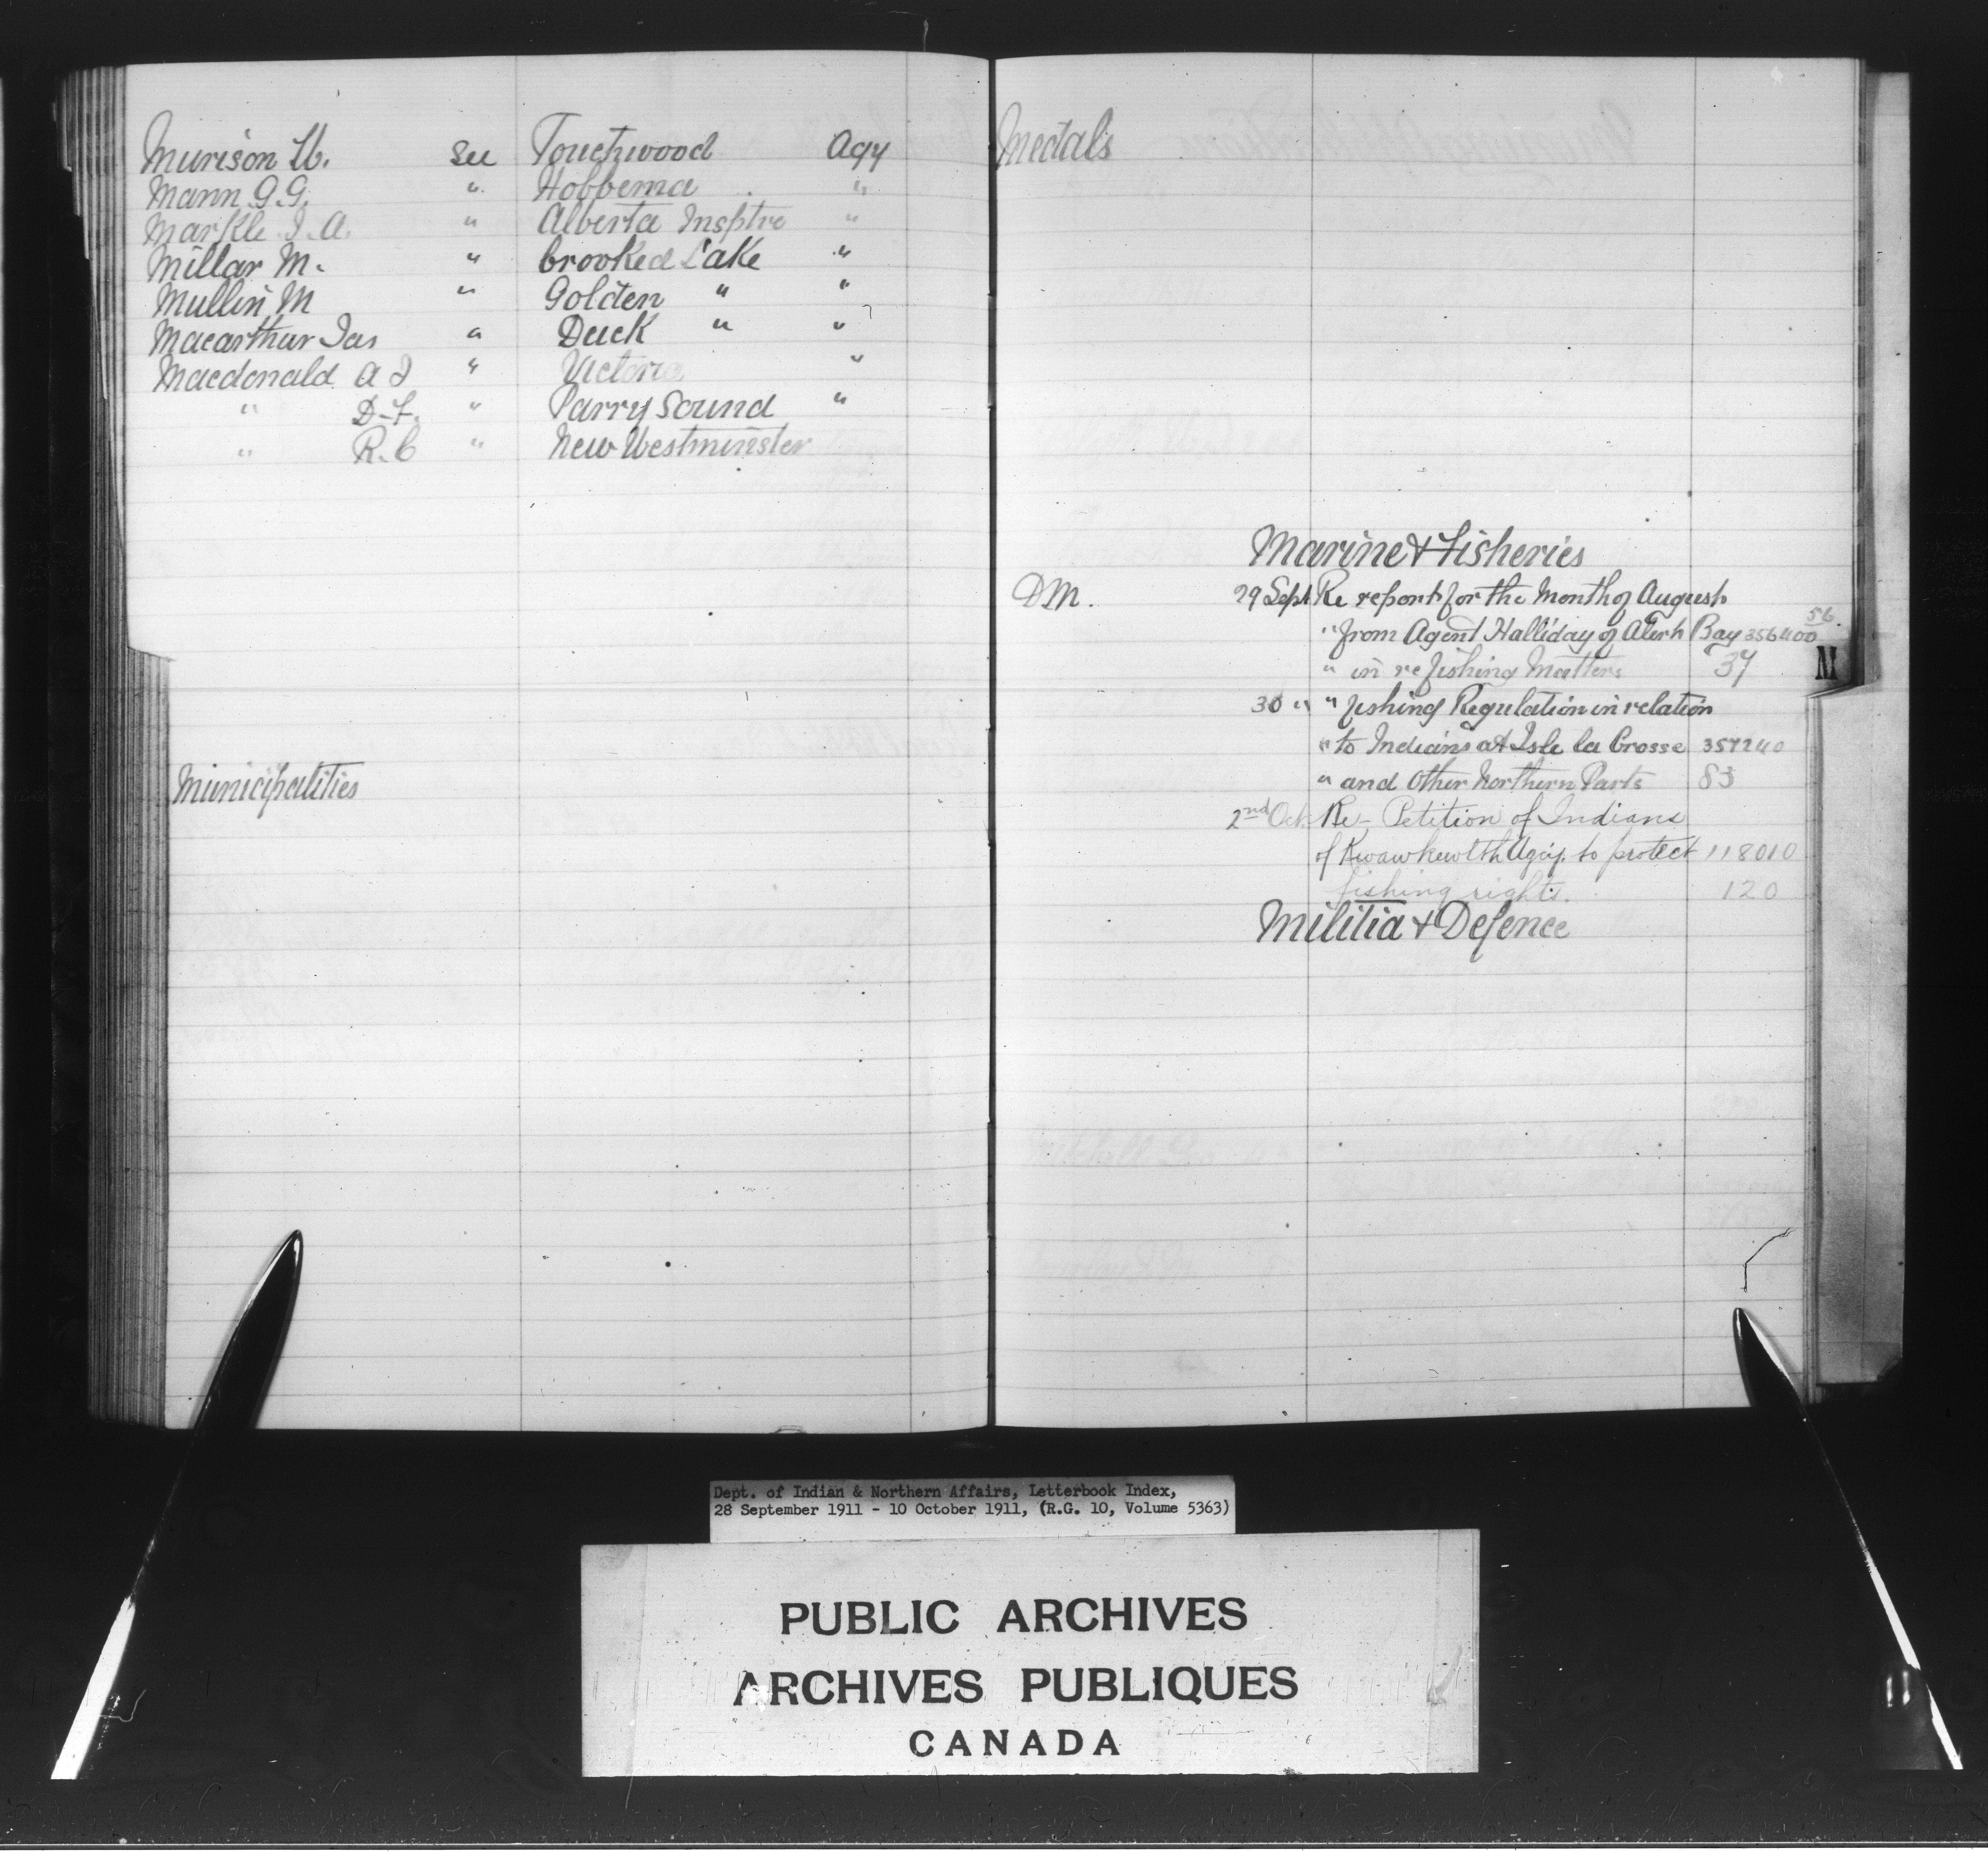 Murison W. See Touchwood Agy
Mann G.G. " Hobbema "
Markle J.A. " Alberta Insptre "
Millar M. " Crooked Lake "
Mullin M " Golden " "
Macarthur Jas " Duck " "
Macdonald A J " Victoria "
" D.F. " Parry Sound "
" R.C " New Westminster
Municipalities
Medals
Marine & Fisheries
DM. 29 Sept Re report for the Month of August
" from Agent Halliday of Alert Bay 356400 56
" in re fishing Matters 37
30 " " fishing Regulation in relation
" to Indians at Isle la Crosse 357240
" and other Northern Parts 83
2nd Oct. Re- Petition of Indians
of Kwawkewlth Agcy. to protect 118010
fishing rights. 120
Militia & Defence
M
Dept. of Indian & Northern Affairs, Letterbook Index,
28 September 1911 - 10 October 1911, (R.G. 10, Volume 5363)
PUBLIC ARCHIVES
ARCHIVES PUBLIQUES
CANADA